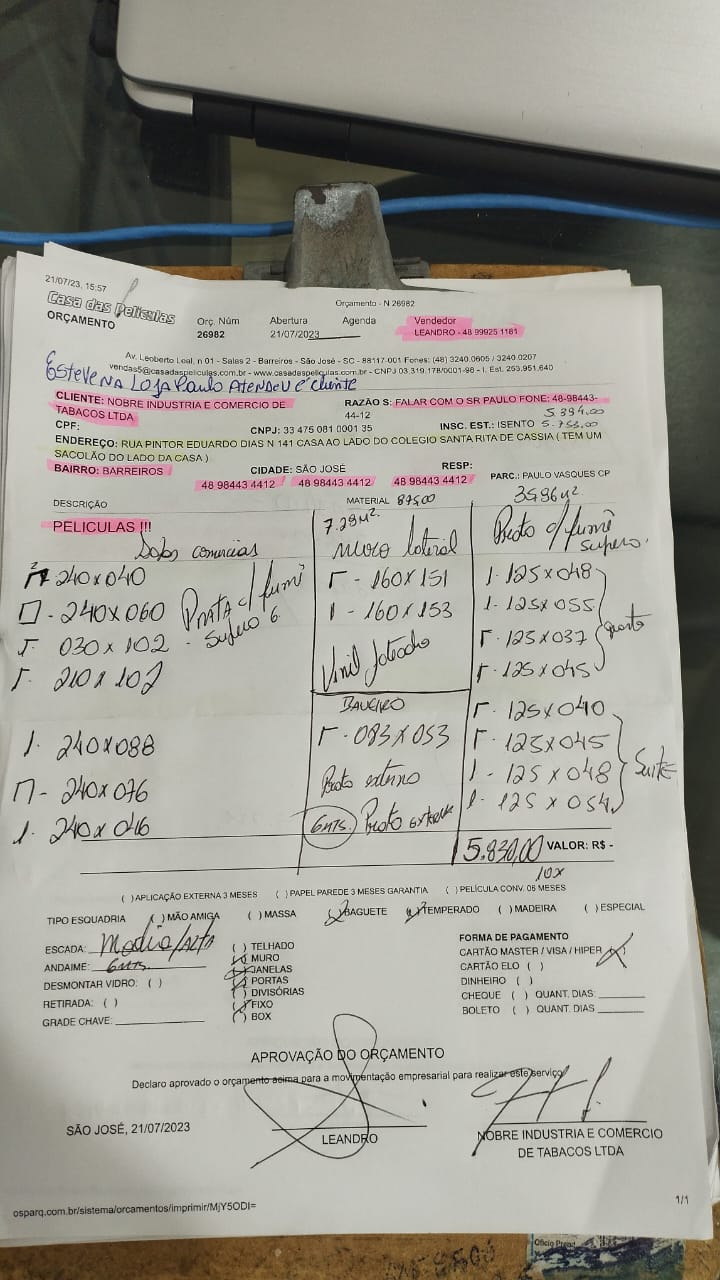 21/07/23, 15:57
Orçamento - N 26982
Casa das Películas
ORÇAMENTO
Orç. Núm Abertura Agenda Vendedor
26982 21/07/2023 LEANDRO - 48 99925 1181
Av. Leoberto Leal, n 01 - Sales 2 - Barreiros - São José - SC - 88117-001 Fones: (48) 3240.0605 / 3240.0207
vendas5@casadaspeliculas.com.br - www.casadaspeliculas.com.br - CNPJ 03.319.178/0001-96 - I. Est. 253.951.640
ESTEVE NA LOJA PAULO ATENDEU É CLIENTE
CLIENTE: NOBRE INDUSTRIA E COMERCIO DE TABACOS LTDA
RAZÃO S: FALAR COM O SR PAULO FONE: 48-98443-44-12
5.394,00
CPF: CNPJ: 33 475 081 0001 35 INSC. EST.: ISENTO 5.753,00
ENDEREÇO: RUA PINTOR EDUARDO DIAS N 141 CASA AO LADO DO COLEGIO SANTA RITA DE CASSIA ( TEM UM
SACOLÃO DO LADO DA CASA )
BAIRRO: BARREIROS CIDADE: SÃO JOSÉ RESP:
48 98443 4412 48 98443 4412 48 98443 4412 PARC.: PAULO VASQUES CP
DESCRIÇÃO MATERIAL
PELICULAS !!!
7.29M²
Muro lateral
240x040
240x060
030x102
210x102
160x151
160x153
125x048
125x055
125x037
125x045
quarto
240x088
240x076
240x046
083x053
Preto externo
6mts.
125x040
125x045
125x048
125x054
Suite
5.830,00 VALOR: R$ -
10x
( ) APLICAÇÃO EXTERNA 3 MESES ( ) PAPEL PAREDE 3 MESES GARANTIA ( ) PELÍCULA CONV. 06 MESES
TIPO ESQUADRIA ( ) MÃO AMIGA ( ) MASSA ( ) BAGUETE ( ) TEMPERADO ( ) MADEIRA ( ) ESPECIAL
ESCADA: Media/Alta
ANDAIME: 6mts.
DESMONTAR VIDRO: ( )
RETIRADA: ( )
GRADE CHAVE:
( ) TELHADO
( ) MURO
( ) JANELAS
( ) PORTAS
( ) DIVISÓRIAS
( ) FIXO
( ) BOX
FORMA DE PAGAMENTO
CARTÃO MASTER / VISA / HIPER ( )
CARTÃO ELO ( )
DINHEIRO ( )
CHEQUE ( ) QUANT. DIAS:
BOLETO ( ) QUANT. DIAS
APROVAÇÃO DO ORÇAMENTO
Declaro aprovado o orçamento acima para a movimentação empresarial para realizar este serviço
SÃO JOSÉ, 21/07/2023
LEANDRO
NOBRE INDUSTRIA E COMERCIO
DE TABACOS LTDA
osparq.com.br/sistema/orcamentos/imprimir/MjY5ODI=
1/1